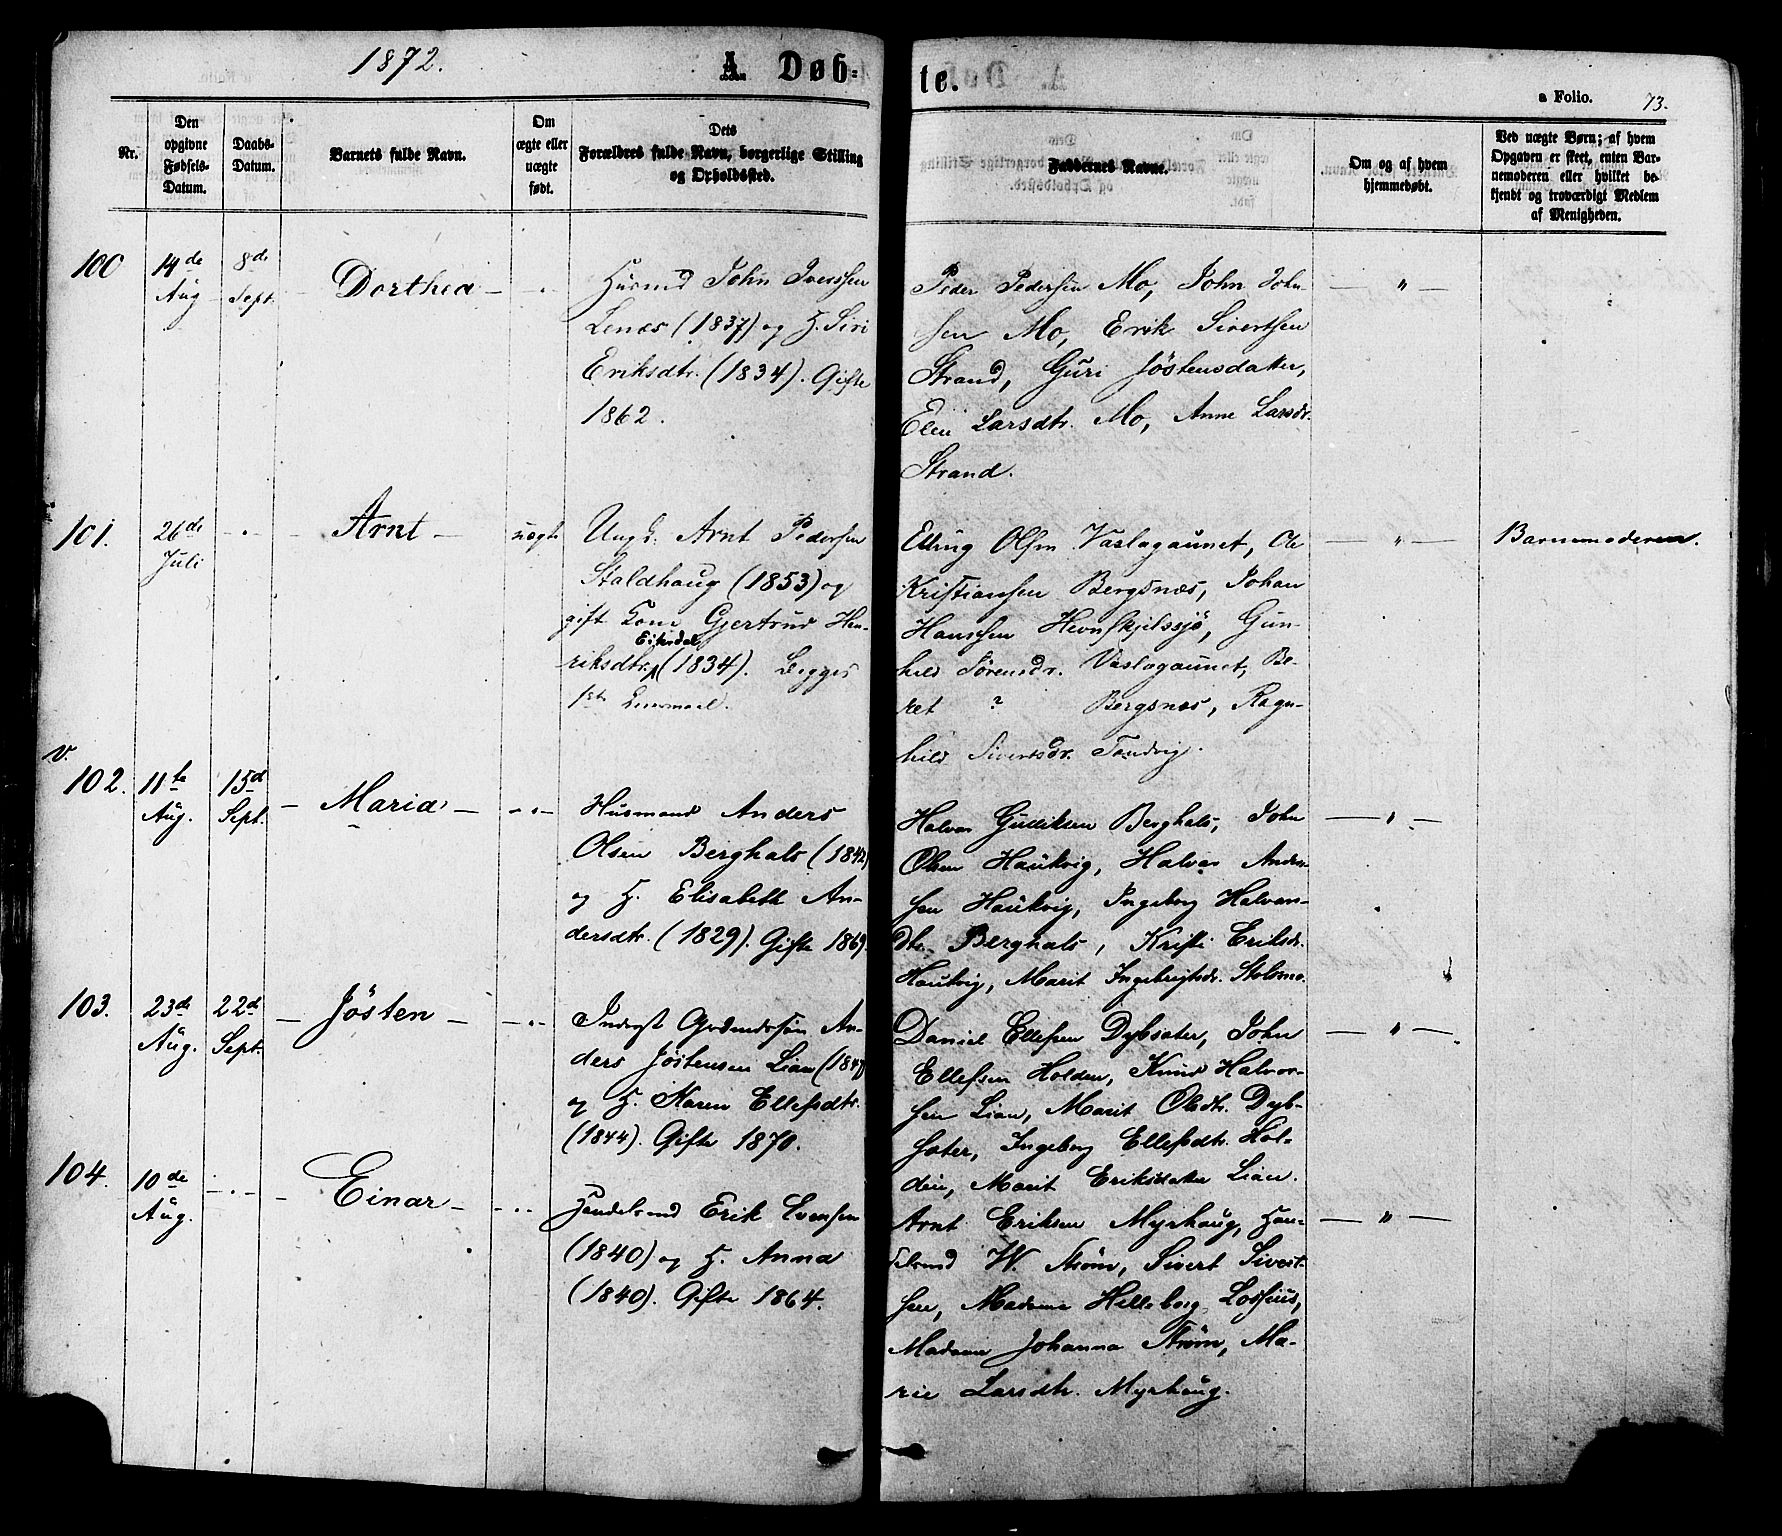 1872.
A. Døb-
te.
a Folio. 73.
Nr.
Den
opgivne
Fødsels-
Datum.
Daabs-
Datum.
Barnets fulde Navn.
Om
ægte eller
uægte
født.
Dets
Forældres fulde Navn, borgerlige Stilling
og Opholdssted.
Faddernes Navne.
Om og af hvem
hjemmedøbt.
Ved uægte Børn; af hvem
Opgaven er skeet, enten Bar-
nemoderen eller hvilket be-
kjendt og troværdigt Medlem
af Menigheden.
100
14de
Aug
8de
Sept.
Dorthea
Husmd John Iverssen
Lenæs (1837) og H. Siri
Eriksdtr. (1834). Gifte
1862.
Peder Pedersen Mo, John John-
sen Mo, Erik Sivertsen
Strand, Guri Jöstensdatter,
Elen Larsdtr. Mo, Anne Larsdr.
Strand.
101.
26de
Juli
Arnt
uægte
Ungk. Arnt Pedersen
Staldhaug (1853) og
gift Kone Gjertrud Hen-
riksdtr. (1834). Begges
1ste Leiermaal.
Elling Olsen Vaslagaunet, Ole
Kristiansen Bergsnæs, Johan
Hanssen Hevnskjelssjö, Gun-
hild Sörensdr. Vaslagaunet, Be-
ret ? Bergsnæs, Ragn-
hild Sivertsdr. Tandvig.
Barnemoderen.
v.
102.
11te
Aug.
15d
Sept.
Maria
Husmand Anders
Olsen Berghals (1842)
og H. Elisabeth An-
dersdtr. (1829). Gifte 1869.
Halvor Gulliksen Berghals, John
Olsen Haukvig, Halvor Anders-
sen Haukvig, Ingeborg Halvors-
dtr. Berghals, Kristi Eriksdr.
Haukvig, Marit Ingebrigtsdr. Stolsmo.
103.
23de
Aug.
22d
Sept.
Jösten
Inderst Gaardmandssön An-
ders Jöstensen Lian (1847)
og H. Karen Ellefsdtr.
(1844). Gifte 1870.
Daniel Ellefsen Dybsæter, John
Ellefsen Holden, Knud Halvor-
sen Lian, Marit Olsdtr. Dyb-
sæter, Ingeborg Ellefsdtr. Hol-
den, Marit Eriksdatter Lian.
104.
10de
Aug.
Einar
Handelsmd Erik Evensen
(1840) og H. Anna
(1840). Gifte 1864.
Arnt Eriksen Myrhaug, Han-
delsmd W. Strøm, Sivert Sivert-
sen, Madame Hilleborg Lossius,
Madam Johanna Strøm, Ma-
rie Larsdtr. Myrhaug.